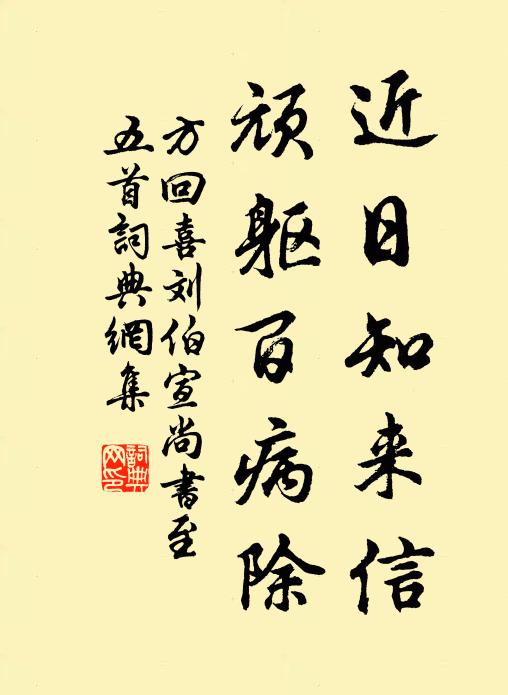 近日知来信
顽躯百病除
方回喜刘伯宣尚書至
五首詞典網集
詞典網印